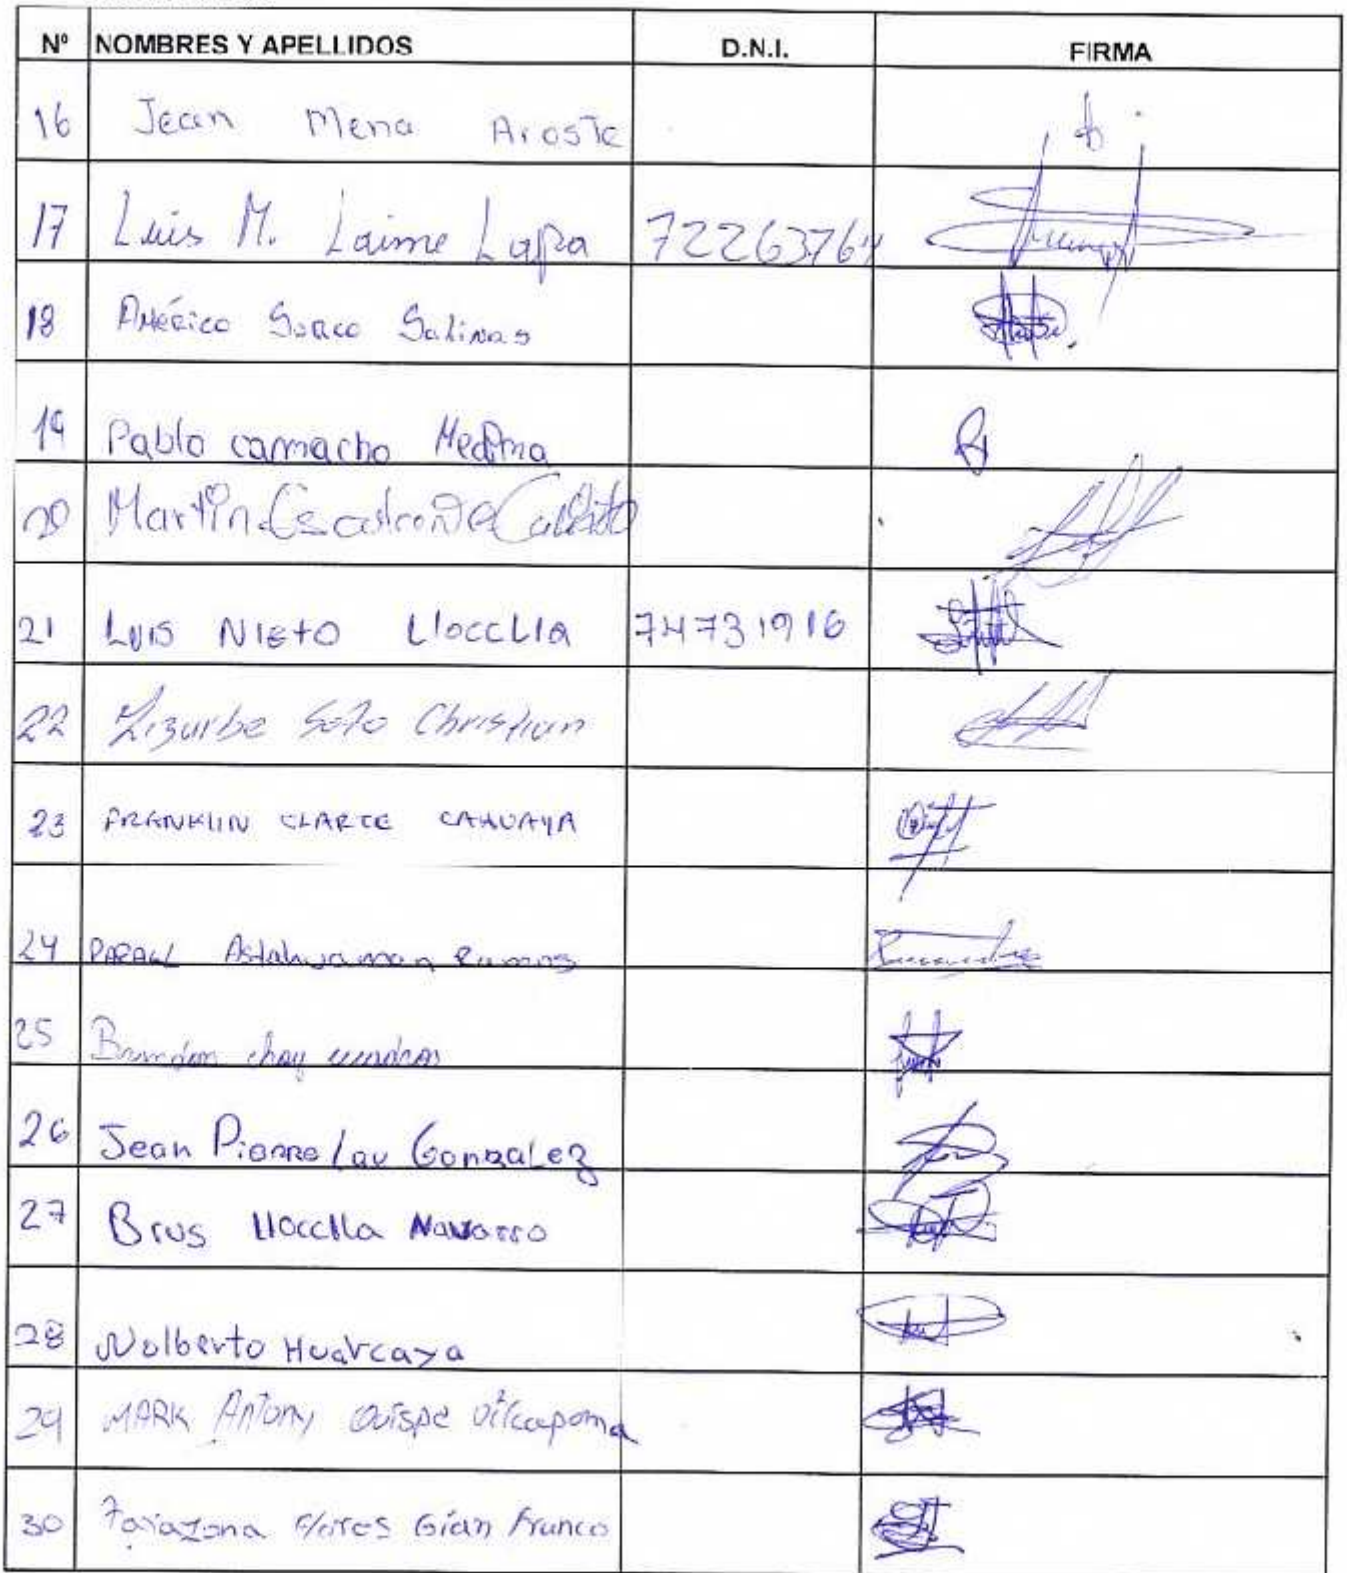 Nº NOMBRES Y APELLIDOS D.N.I. FIRMA
16 Jean Mena Aroste
17 Luis M. Laime Lapa 72263764
18 Américo Sorco Salinas
19 Pablo camacho Medina
20 Martin Escalante
21 LUIS NIETO LloccLla 74731916
22 Lizurbe Soto Christian
23 FRANKLIN CLARTE CAHUAYA
24 Astahuaman Ramos
25 Brandon chay
26 Jean Pierre Lau Gonzalez
27 Brus Llocclla Navarro
28 Nolberto Huarcaya
29 MARK Antony Quispe Vilcapoma
30 Tarazona Flores Gian Franco